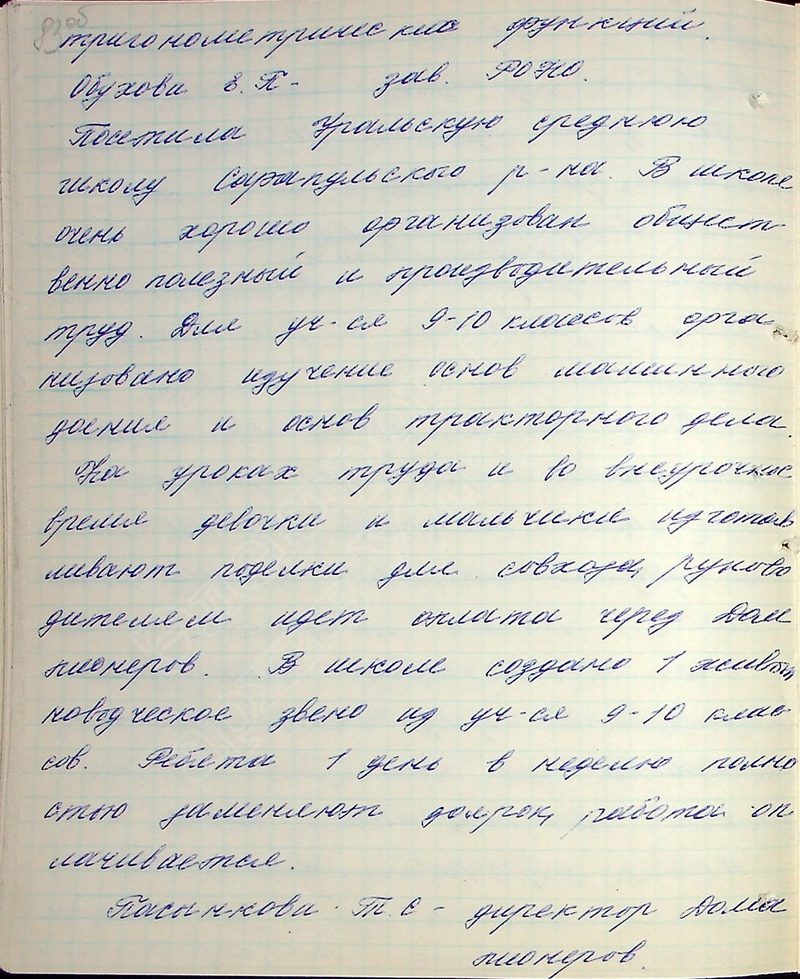 83об
тригонометрических функций.
Обухова Е.П - зав. РОНО.
Посетила Уральскую среднюю
школу Сарапульского р-на. В школе
очень хорошо организован общест
венно полезный и производительный
труд. Для уч-ся 9-10 классов орга
низовано изучение основ машинного
доения и основ тракторного дела.
На уроках труда и во внеурочное
время девочки и мальчики изготав
ливают поделки для совхоза, руково
дителям идет оплата через Дом
пионеров. В школе создано 1 живот
новодческое звено из уч-ся 9-10 клас
сов. Ребята 1 день в неделю полно
стью заменяют доярок, работа оп
лачивается.
Пасынкова Т.С - директор Дома
пионеров.